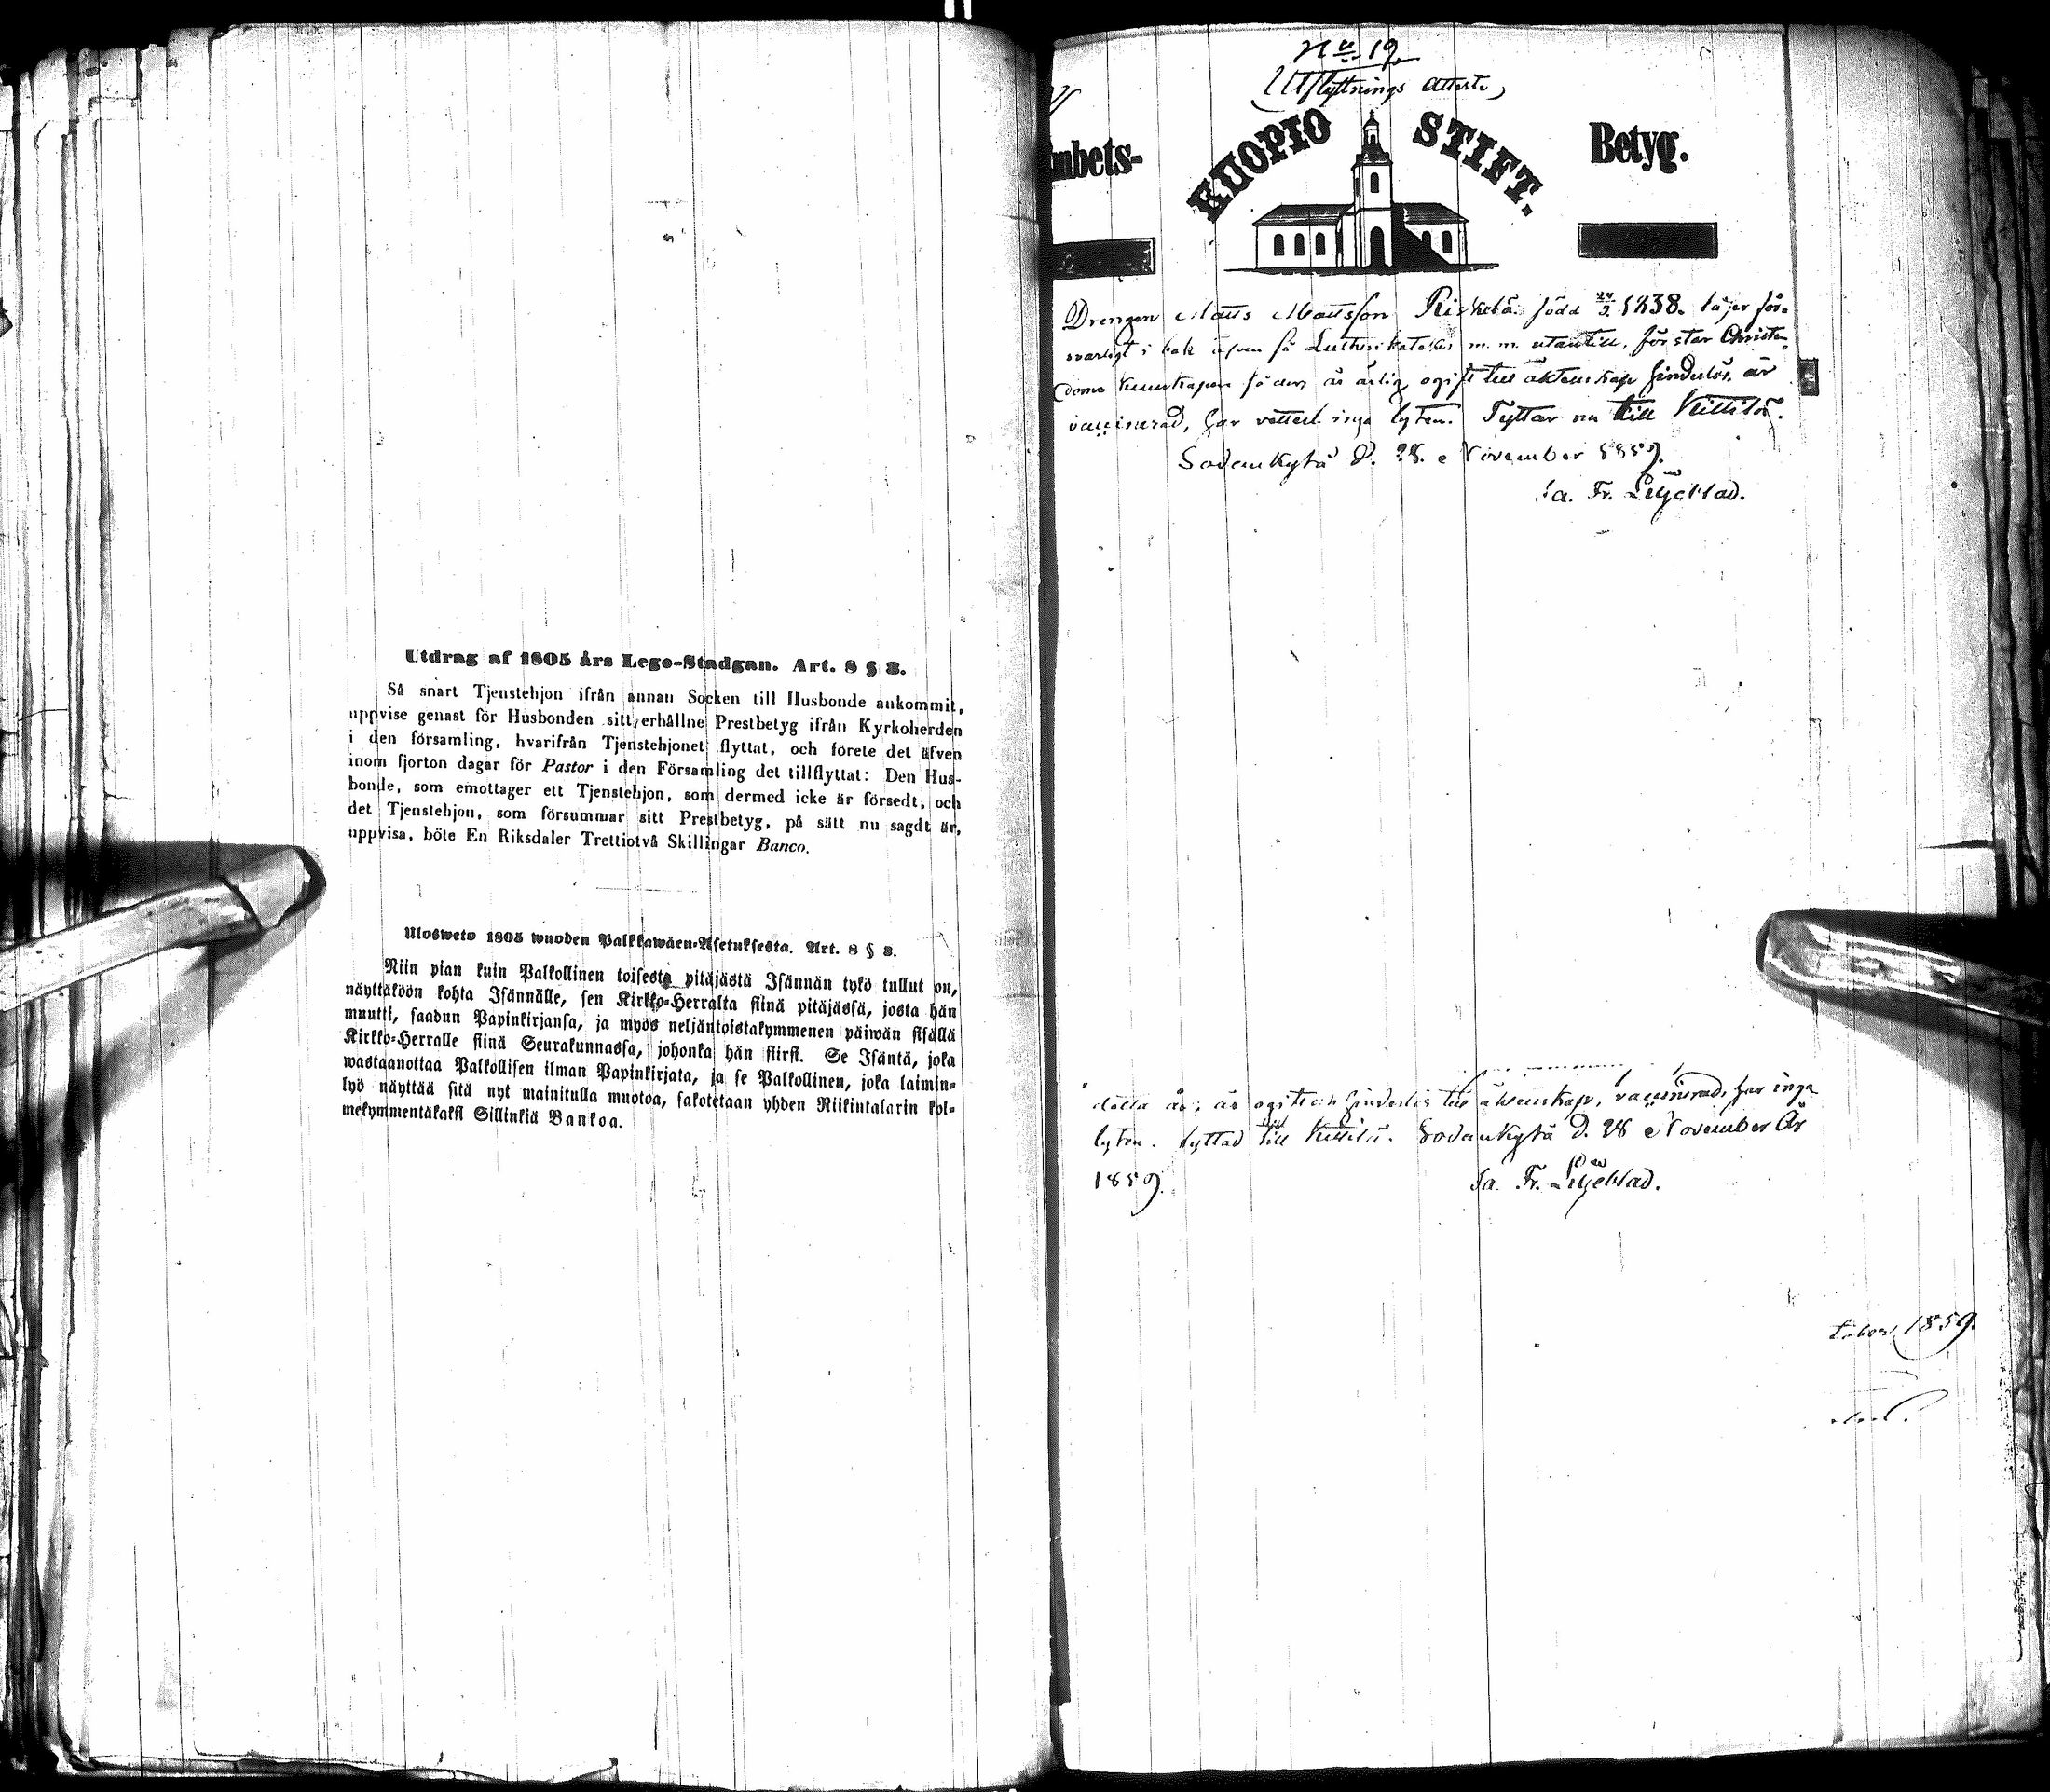 Utdrag af 1805 års Lego-Stadgan. Art. 8 § 3.
Så snart Tjenstehjon ifrån annan Socken till Husbonde ankommit,
uppvise genast för Husbonden sitt erhållne Prestbetyg ifrån Kyrkoherden
i den församling, hvarifrån Tjenstehjonet flyttat, och förete det äfven
inom fjorton dagar för Pastor i den Församling det tillflyttat: Den Hus-
bonde, som emottager ett Tjenstehjon, som dermed icke är försedt, och
det Tjenstehjon, som försummar sitt Prestbetyg, på sätt nu sagdt är,
uppvisa, böte En Riksdaler Trettiotvå Skillingar Banco.
Ulosweto 1805 wuoden Palkkawäen-Asetuksesta. Art. 8 § 3.
Niin pian kuin Palkollinen toisesta pitäjästä Isännän tykö tullut on,
näyttäköön kohta Isännälle, sen Kirkko-Herralta siinä pitäjässä, josta hän
muutti, saadun Papinkirjansa, ja myös neljäntoistakymmenen päiwän sisällä
Kirkko-Herralle siinä Seurakunnassa, johonka hän siirsi. Se Isäntä, joka
wastaanottaa Palkollisen ilman Papinkirjata, ja se Palkollinen, joka laimin-
lyö näyttää sitä nyt mainitulla muotoa, sakotetaan yhden Riikintalarin kol-
mekymmentäkaksi Sillinkiä Bankoa.
No 19
Utflyttnings Attest
mbets-
KUOPIO STIFT.
Betyg.
Drengen Matts Mattsson född 1838. läser för-
svarligt i bok äfven så Lutheri kateches m. m. utantill, förstår Christen-
doms kunskapen är ärlig ogift till äktenskap hinderlös, är
vaccinerad, har inga lyten. Flyttar nu till Kittilä.
Sodankylä d. 28. November 1859.
Fr. Liljeblad.
detta år, är ogift och hinderlös till äktenskap, vaccinerad, har inga
lyten. flyttad till Kittilä. Sodankylä d. 28 November År
1859. Fr. Liljeblad.
1859.